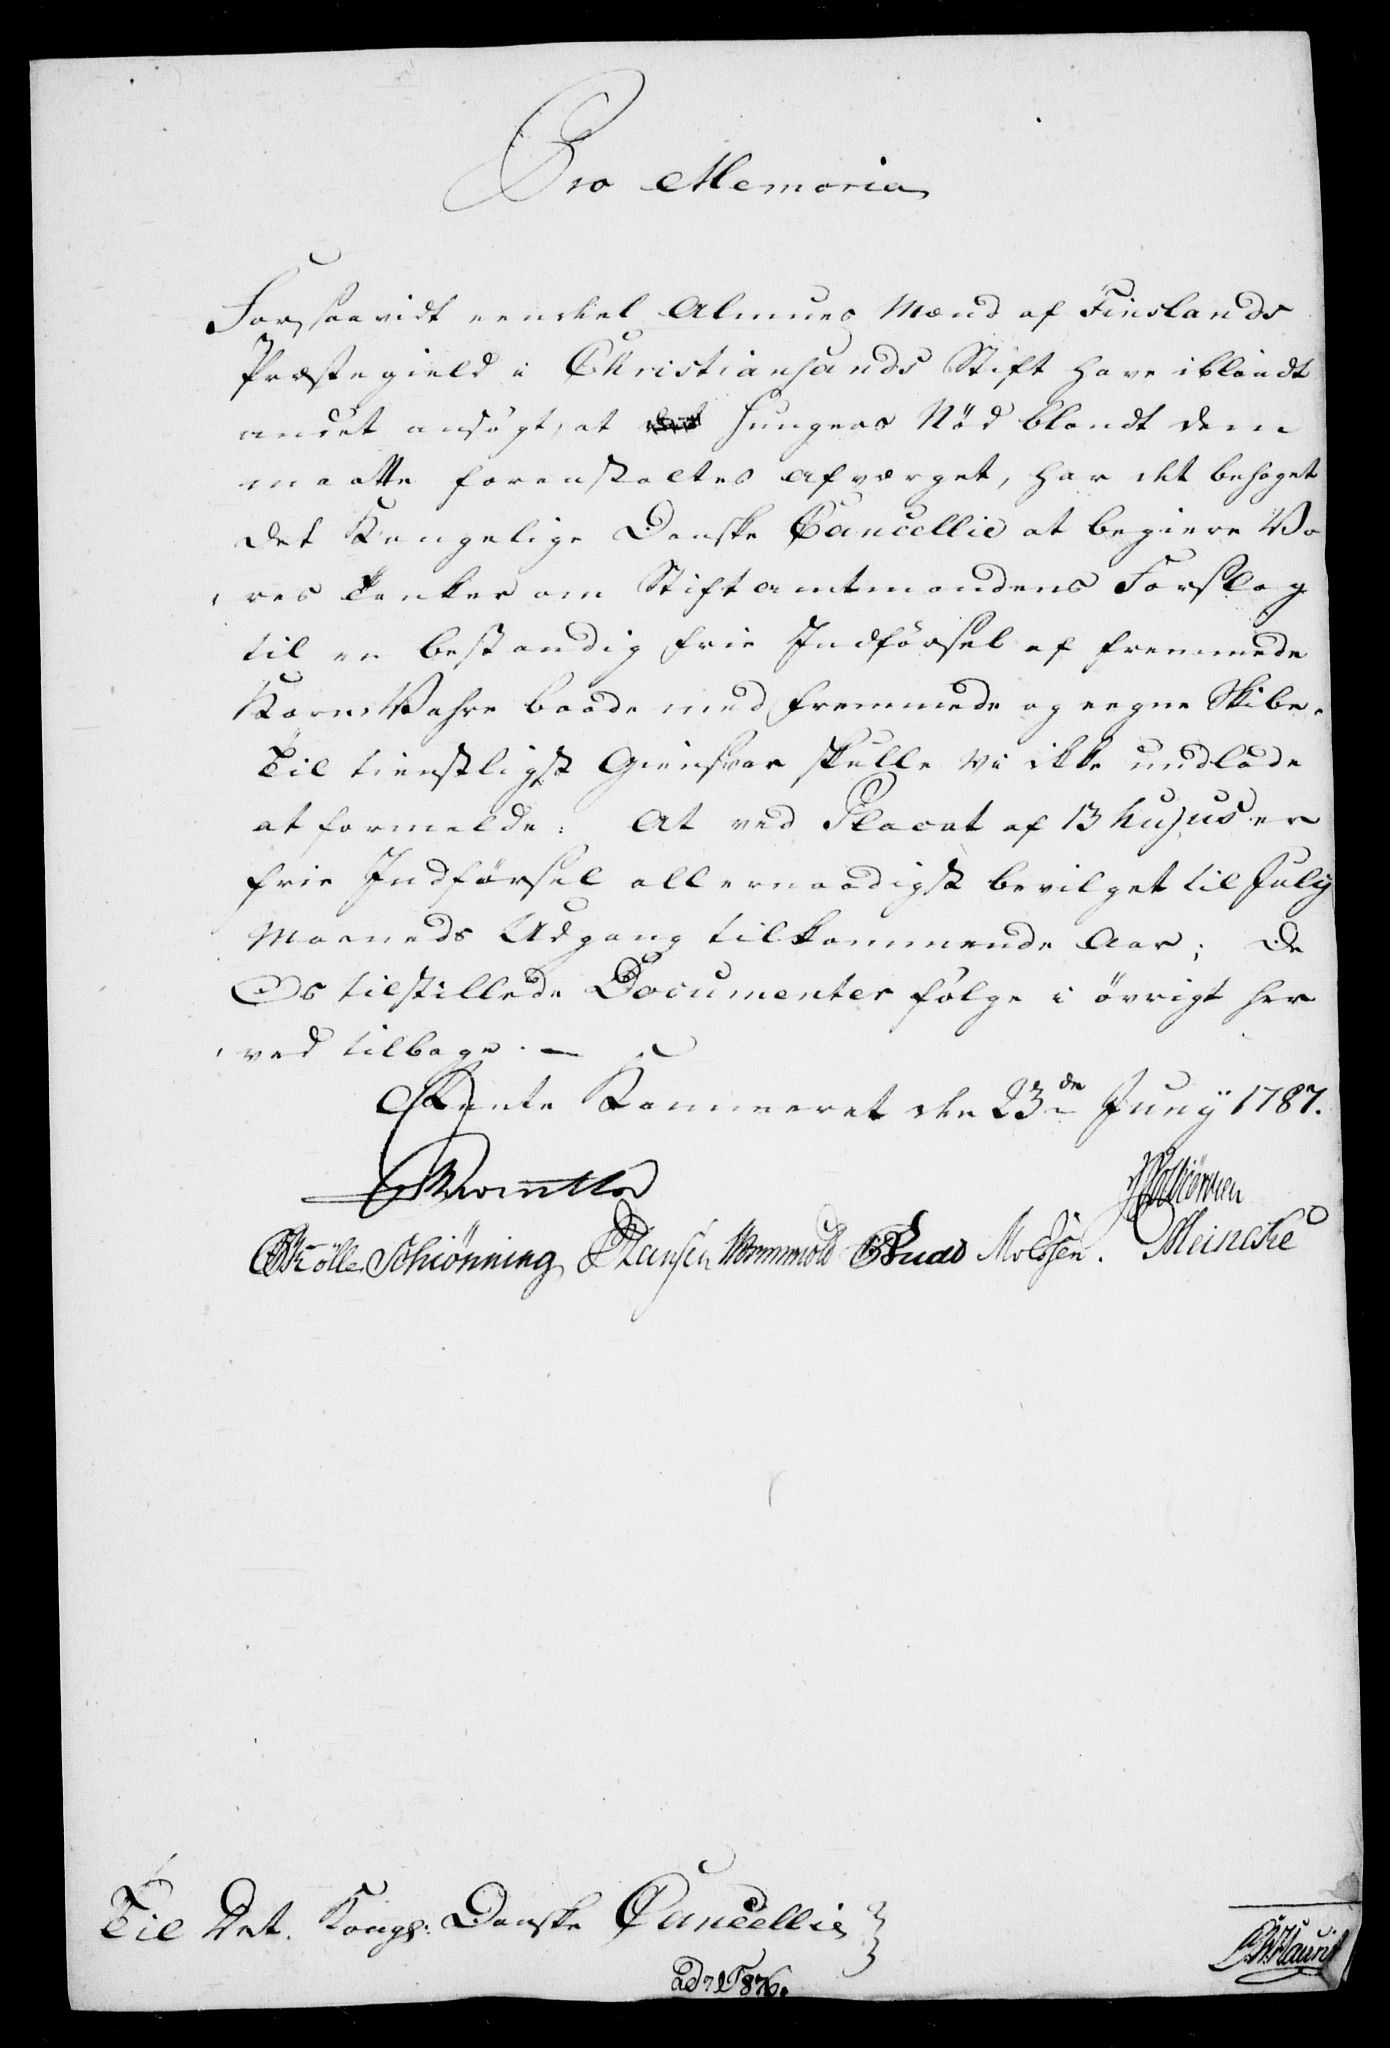 Pro Memoria
Forsaavidt eendeel Almues Mænd af Finslands
Præstegield i Christiansands Stift have iblandt
andet ansøgt, at Hungers Nød blandt dem
maatte foranstaltes afværget, har det behaget
det Kongelige Danske Cancellie at begiere Vo
res Tanker om Stiftamtmandens Forslag
til en bestandig frie Indförsel af fremmede
Korn-Vahre baade med fremmede og eegne Skibe.
Til tienstligst Giensvar skulle Vi ikke undlade
at formelde: At ved Placat af 13 hujus er
frie Indførsel allernaadigst bevilget til July
Maaneds Udgang tilkommende Aar; De
Os tilstillede Documenter følge i øvrigt her
ved tilbage. —
Rente Kammeret den 23de Juny 1787.
Schiönning Hansen Wormwold Moldsen. Meincke
Til Det Kongl: Danske Cancellie